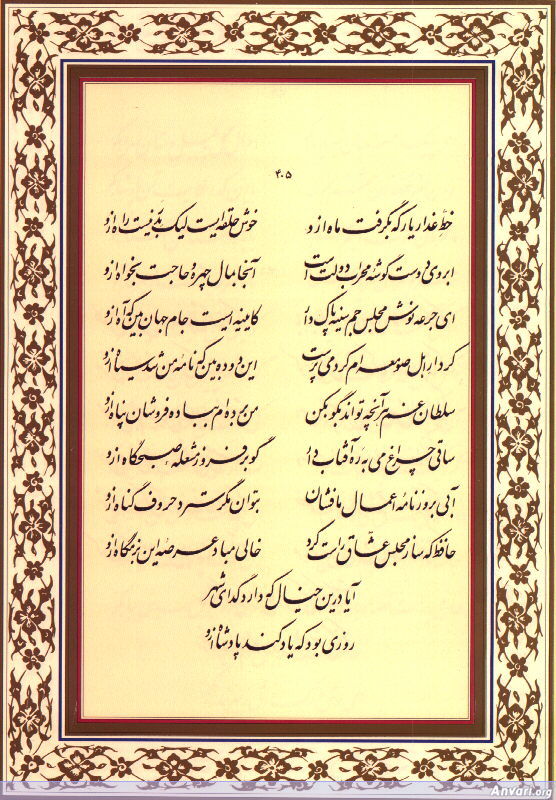 ۴۰۵
خط عذار یار که بگرفت ماه ازو خوش حلقه ایست لیک بدر نیست راه ازو
ابروی دوست گوشه محراب دولت است آنجا بمال چهره و حاجت بخواه ازو
ای جرعه نوش مجلس جم سینه پاک دار کایینه ایست جام جهان بین که آه ازو
کردار اهل صومعه ام کرد می پرست این دوده بین که نامه من شد سیاه ازو
سلطان غم هر آنچه تواند بگو بکن من برده ام به باده فروشان پناه ازو
ساقی چراغ می به ره آفتاب دار گو برفروز مشعله صبحگاه ازو
آبی به روزنامه اعمال ما فشان بتوان مگر سترد حروف گناه ازو
حافظ که ساز مجلس عشاق راست کرد خالی مباد عرصه این بزمگاه ازو
آیا درین خیال که دارد گدای شهر
روزی بود که یاد کند پادشاه ازو
Anvari.org